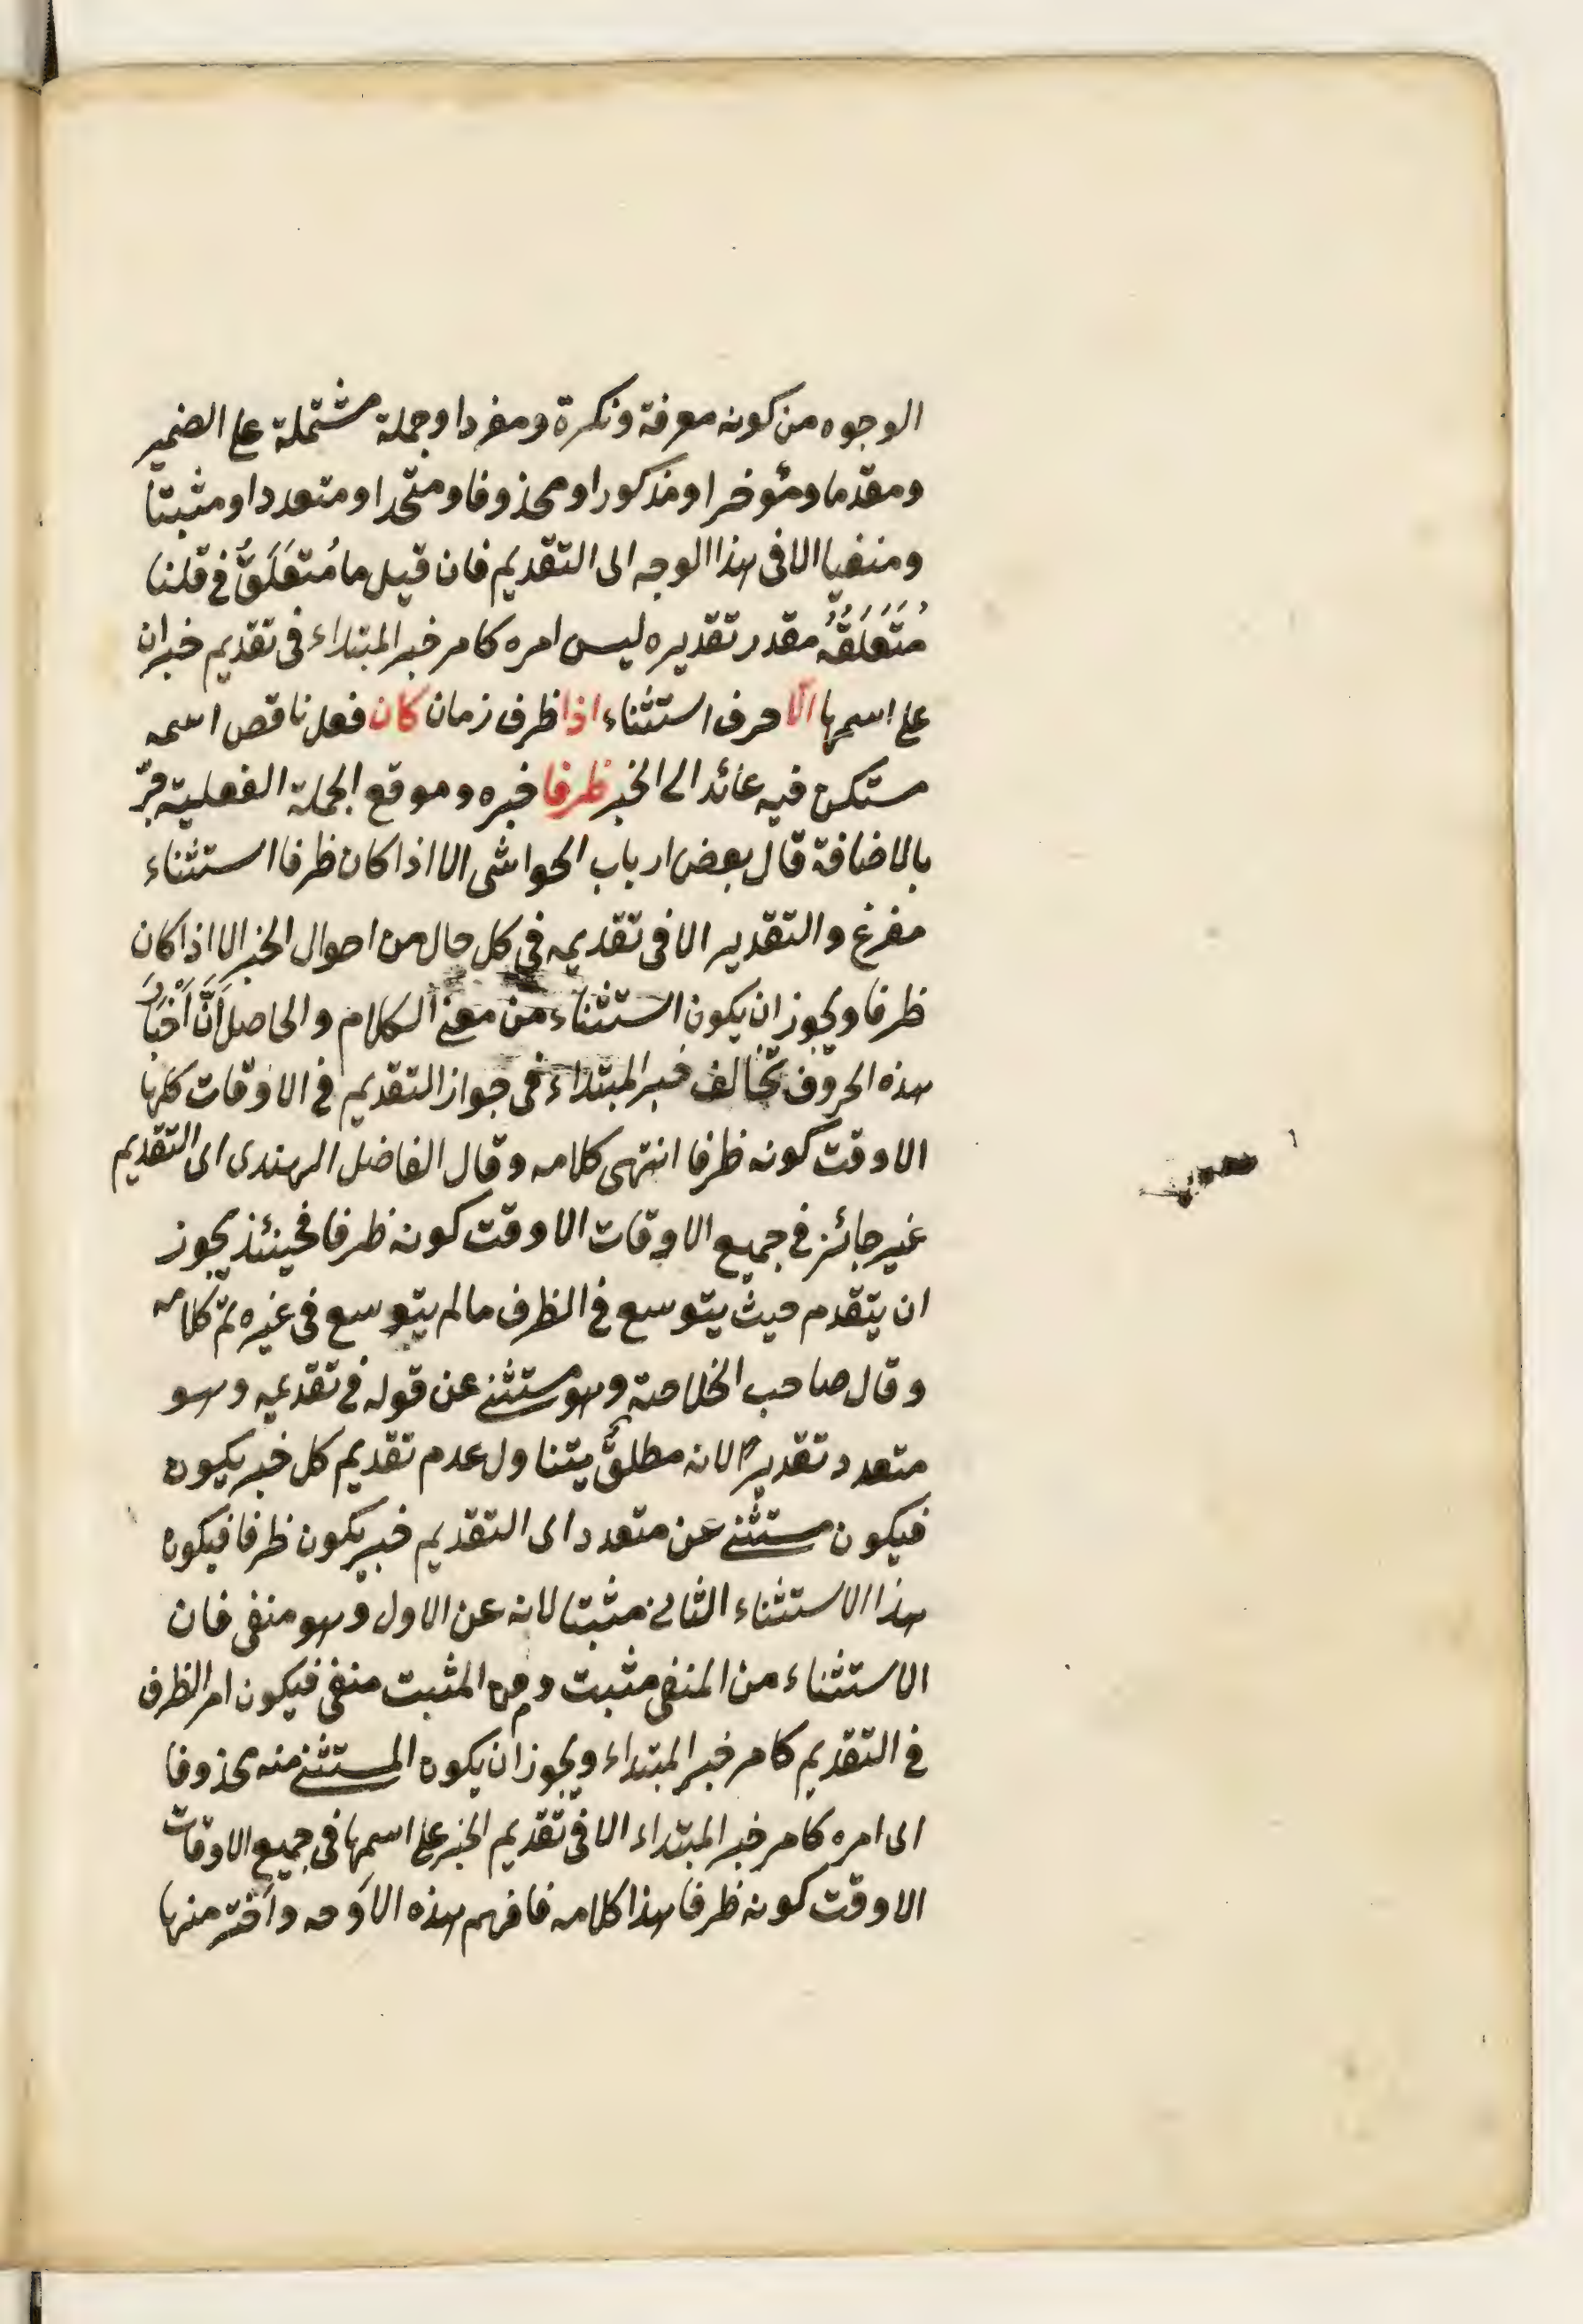 الوجوه من كونه معرفة ونكرة ومفردا وجملة مشتملة على الضمير
ومقدما ومؤخرا ومذكورا ومحذوفا ومتحدا ومتعددا ومثبتا
ومنفيا الا فى هذا الوجه اى التقديم فان قيل ما مُتعَلَقُ فى قلنا
مُتَعَلَقُهُ مقدر تقديره ليس امره كامر خبر المبتداء فى تقديم خبر ان
على اسمها الّا حرف استثناء اذا ظرف زمان كان فعل ناقص اسمه
مستكن فيه عائد الى الخبر ظرفا خبره وموقع الجملة الفعلية جرّ
بالاضافة قال بعض ارباب الحواشى الا اذا كان ظرفا استثناء
مفرغ والتقدير الا فى تقديمه فى كل حال من احوال الخبر الا اذا كان
ظرفا ويجوز ان يكون استثناء من معنى الكلام والحاصل اَنَّ اَخْبَارَ
هذه الحروف تخالف خبر المبتداء فى جواز التقديم فى الاوقات كلها
الا وقت كونه ظرفا انتهى كلامه وقال الفاضل الهندى اى التقديم
غير جائز فى جميع الاوقات الا وقت كونه ظرفا فحينئذ يجوز
ان يتقدم حيث يتوسع فى الظرف ما لم يتوسع فى غيره تم كلامه
وقال صاحب الخلاصة وهو مستثنى عن قوله فى تقديمه وهو
متعدد تقديرا لانه مطلق يتناول عدم تقديم كل خبر يكون
فيكون مستثنى عن متعدد اى التقديم خبر يكون ظرفا فيكون
هذا الاستثناء الثانى مثبتا لانه عن الاول وهو منفى فان
الاستثناء من المنفى مثبت ومن المثبت منفى فيكون امر الظرف
فى التقديم كامر خبر المبتداء ويجوز ان يكون المستثنى منه محذوفا
اى امره كامر خبر المبتداء الا فى تقديم الخبر على اسمها فى جميع الاوقات
الا وقت كونه ظرفا هذا كلامه فافهم هذه الاَوجه واَختر منها